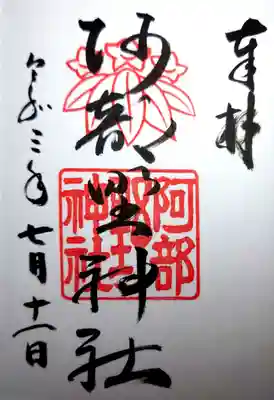 奉拝
阿部野神社
令和三年七月十一日
阿部野神社